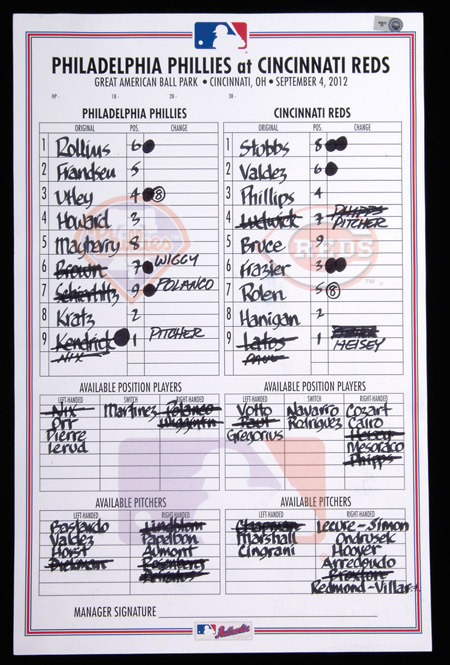 PHILADELPHIA PHILLIES at CINCINNATI REDS
GREAT AMERICAN BALL PARK • CINCINNATI, OH • SEPTEMBER 4, 2012
HP - 1B - 2B - 3B -
PHILADELPHIA PHILLIES
ORIGINAL POS. CHANGE
1 Rollins 6
2 Frandsen 5
3 Utley 4 8
4 Howard 3
5 Mayberry 8
6 Brown 7 WIGGY
7 Schierholtz 9 POLANCO
8 Kratz 2
9 Kendrick 1 PITCHER
NIX
CINCINNATI REDS
ORIGINAL POS. CHANGE
1 Stubbs 8
2 Valdez 6
3 Phillips 4
4 Ludwick 7 PHIPPS
PITCHER
5 Bruce 9
6 Frazier 3
7 Rolen 5 8
8 Hanigan 2
9 Latos 1
HEISEY
PAUL
Phillies
REDS
AVAILABLE POSITION PLAYERS
LEFT-HANDED SWITCH RIGHT-HANDED
Nix Martinez Polanco
Orr Wigginton
Pierre
Lerud
AVAILABLE POSITION PLAYERS
LEFT-HANDED SWITCH RIGHT-HANDED
Votto Navarro Cozart
Paul Rodriguez Cairo
Gregorius Heisey
Mesoraco
Phipps
AVAILABLE PITCHERS
LEFT-HANDED RIGHT-HANDED
Bastardo Lindblom
Valdez Papelbon
Horst Aumont
Diekman Rosenberg
AVAILABLE PITCHERS
LEFT-HANDED RIGHT-HANDED
Chapman Lecure-Simon
Marshall Ondrusek
Cingrani Hoover
Arredondo
Broxton
Redmond-Villar
MANAGER SIGNATURE
Authentic